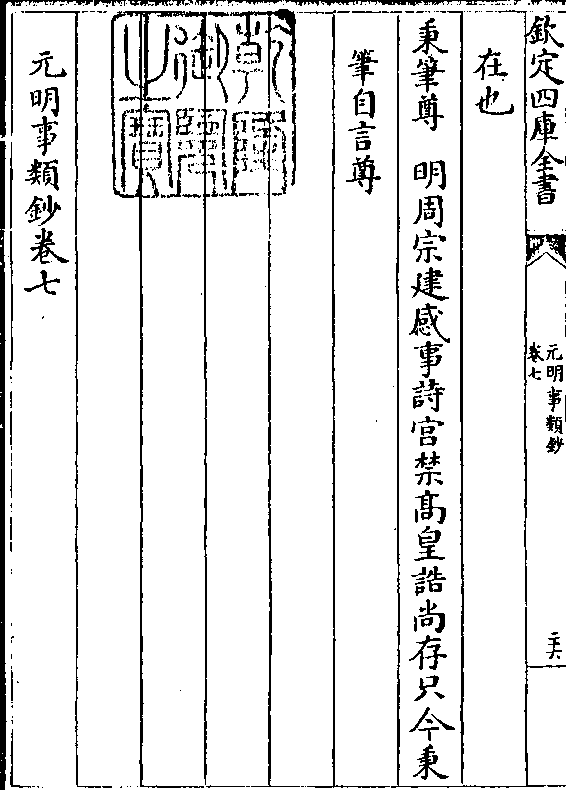 欽定四庫全書
元明事類鈔
卷七
二十六
在也
秉筆尊　明周宗建感事詩宫禁髙皇誥尚存只今秉
筆自言尊
乾隆御覽之寶
元明事類鈔卷七